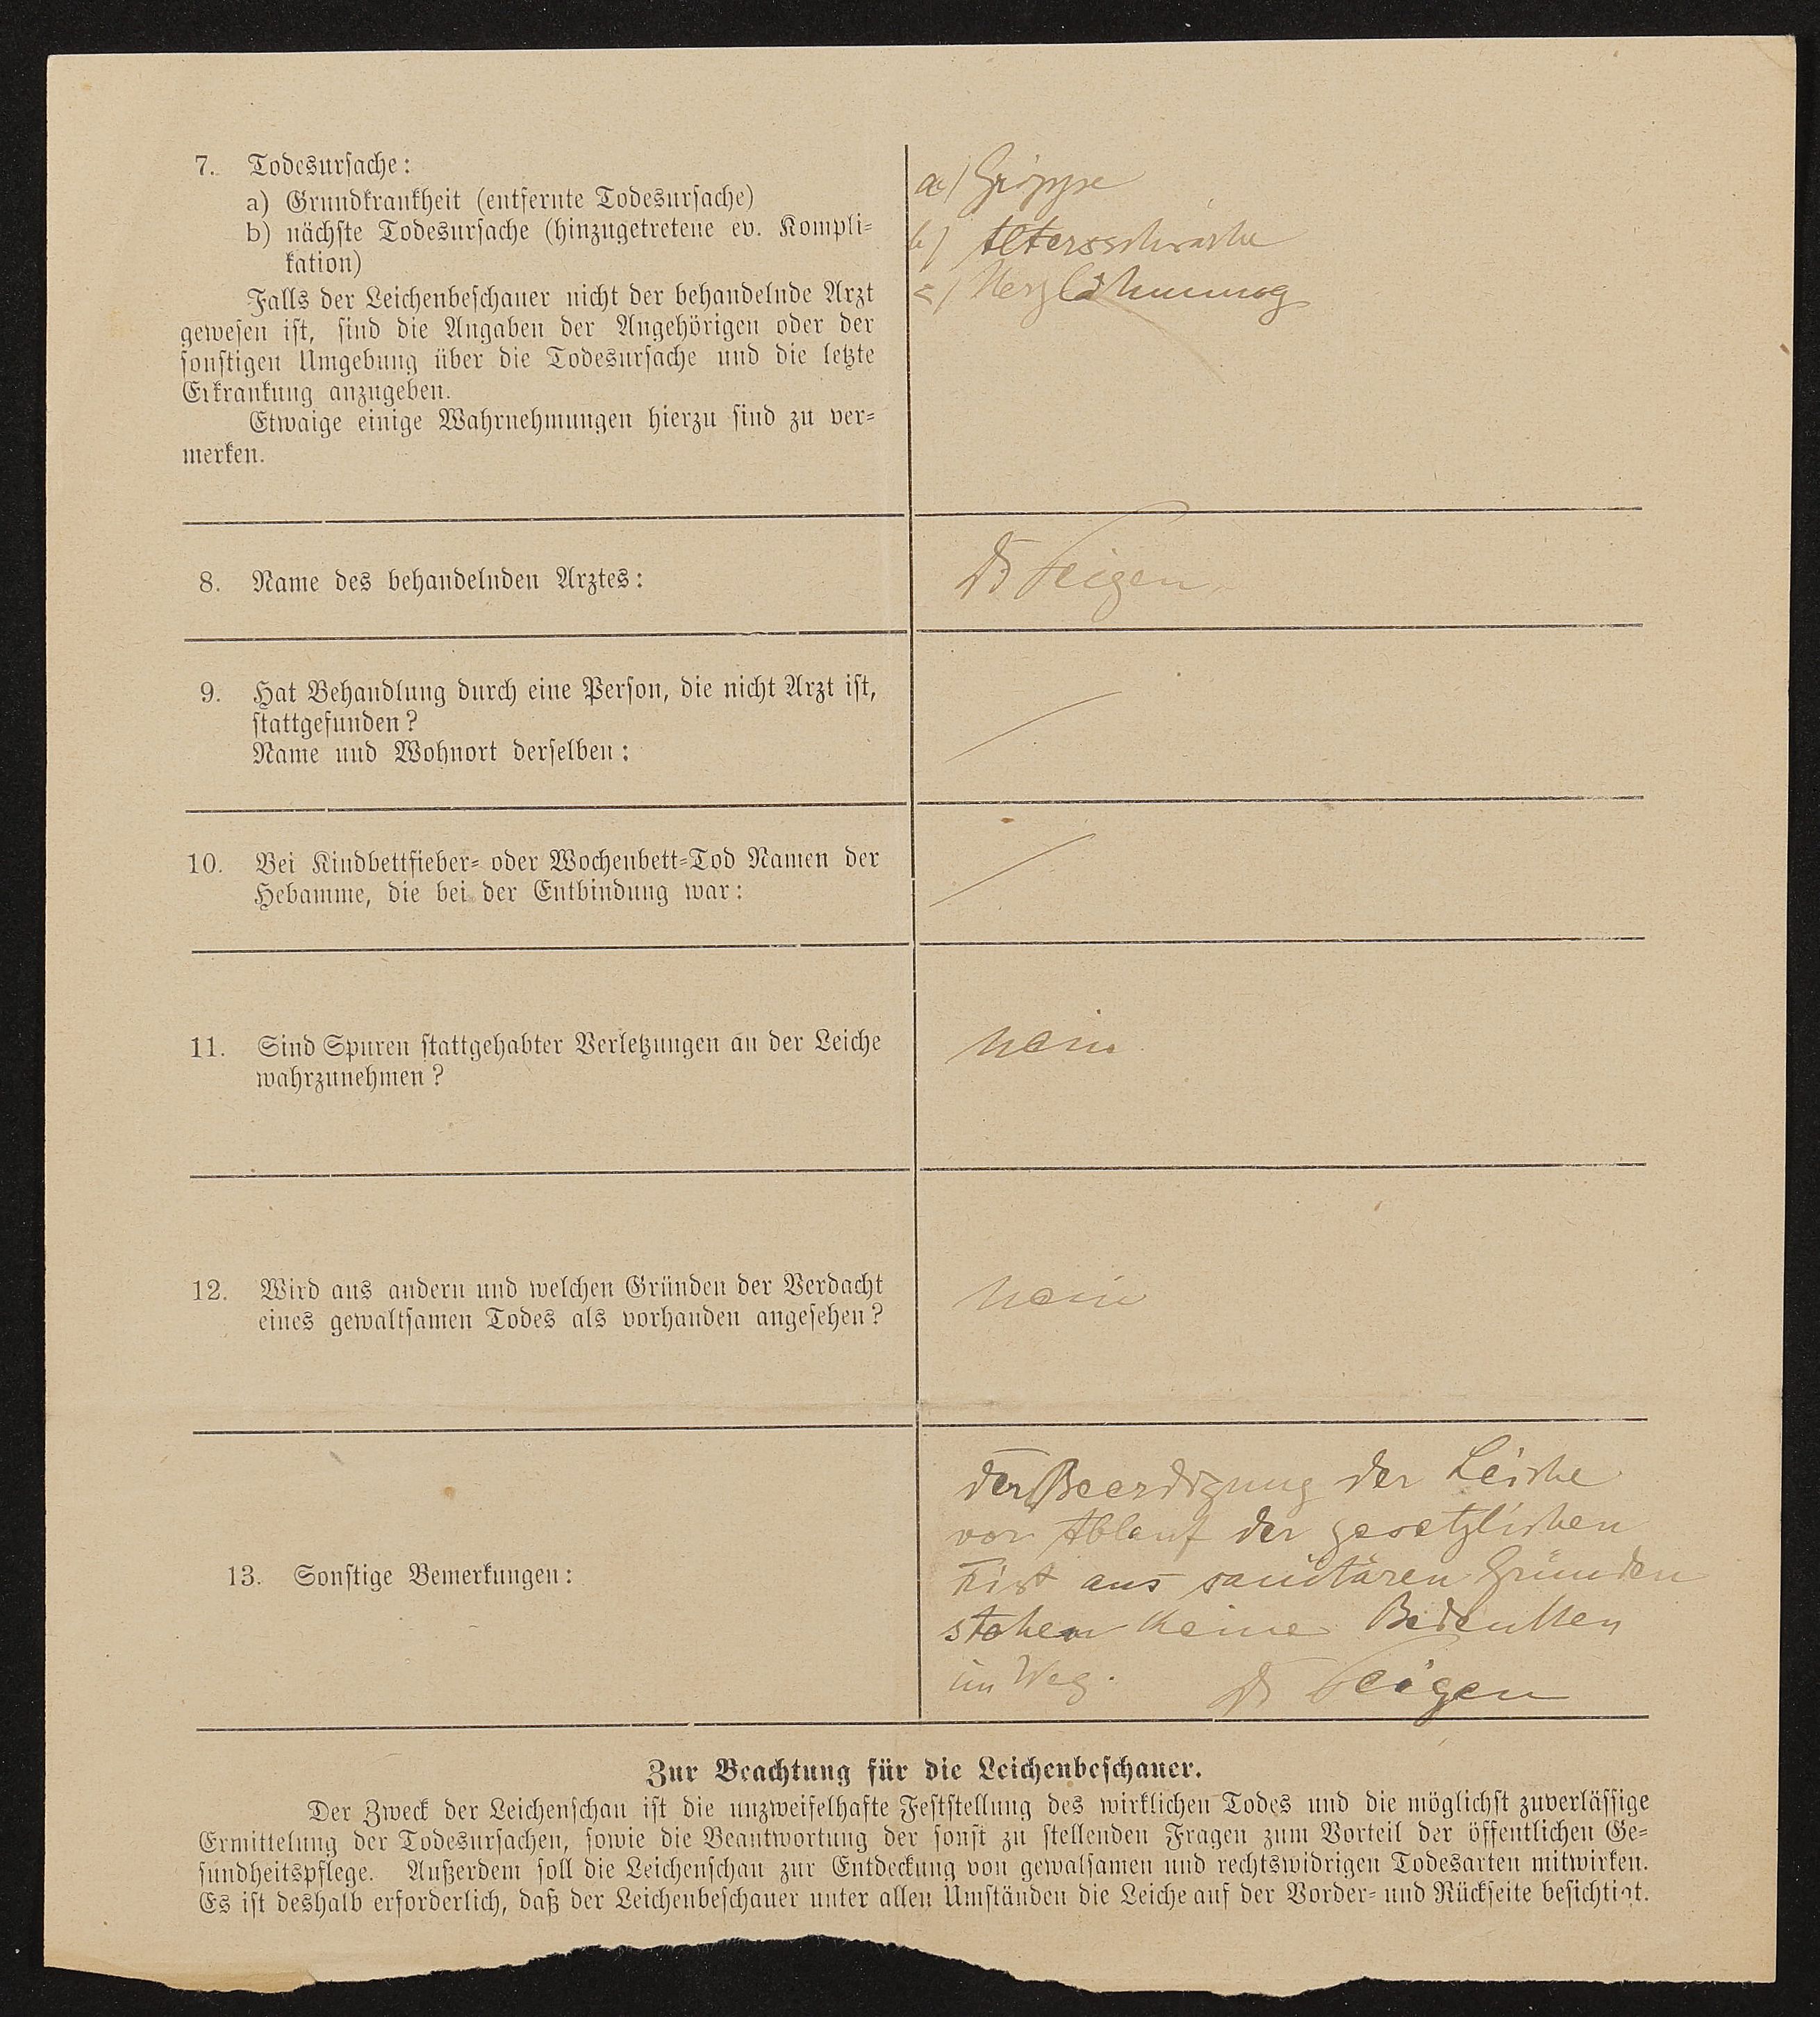 7. Todesursache:
a) Grundkrankheit (entfernte Todesursache)
b) nächste Todesursache (hinzugetretene ev. Kompli-
kation)
Falls der Leichenbeschauer nicht der behandelnde Arzt
gewesen ist, sind die Angaben der Angehörigen oder der
sonstigen Umgebung über die Todesursache und die letzte
Erkrankung anzugeben.
Etwaige einige Wahrnehmungen hierzu sind zu ver-
merken.
a) Grippe
b) Altersschwäche
c) Herzlähmung
8. Name des behandelnden Arztes:
Dr Feigen
9. Hat Behandlung durch eine Person, die nicht Arzt ist,
stattgefunden?
Name und Wohnort derselben:
10. Bei Kindbettfieber- oder Wochenbett-Tod Namen der
Hebamme, die bei der Entbindung war:
11. Sind Spuren stattgehabter Verletzungen an der Leiche
wahrzunehmen?
nein
12. Wird aus andern und welchen Gründen der Verdacht
eines gewaltsamen Todes als vorhanden angesehen?
nein
13. Sonstige Bemerkungen:
Der Beerdigung der Leiche
vor Ablauf der gesetzlichen
Frist aus sanitären Gründen
stehen keine Bedenken
im Weg.
Dr Feigen
Zur Beachtung für die Leichenbeschauer.
Der Zweck der Leichenschau ist die unzweifelhafte Feststellung des wirklichen Todes und die möglichst zuverlässige
Ermittelung der Todesursachen, sowie die Beantwortung der sonst zu stellenden Fragen zum Vorteil der öffentlichen Ge-
sundheitspflege. Außerdem soll die Leichenschau zur Entdeckung von gewalsamen und rechtswidrigen Todesarten mitwirken.
Es ist deshalb erforderlich, daß der Leichenbeschauer unter allen Umständen die Leiche auf der Vorder- und Rückseite besichtigt.